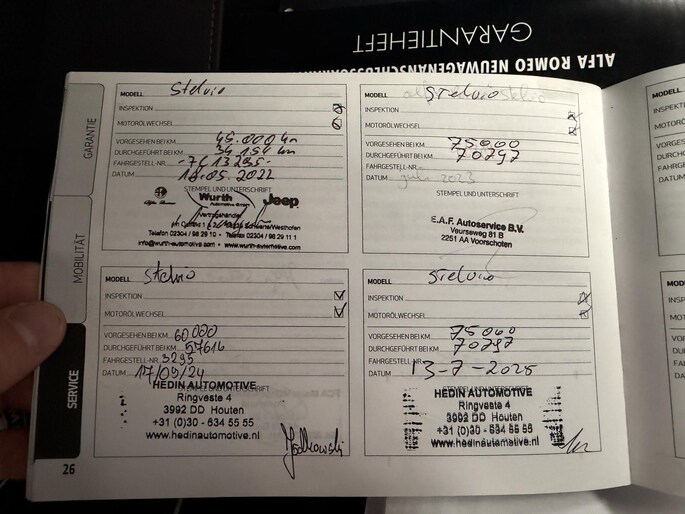 GARANTIEHEFT
ALFA ROMEO NEUWAGENANSCHLUSSGARAN
GARANTIE
MOBILITÄT
SERVICE
MODELL Stelvio
INSPEKTION
MOTORÖLWECHSEL
VORGESEHEN BEI KM 45.000 km
DURCHGEFÜHRT BEI KM
FAHRGESTELL-NR.
DATUM 18.05.2022
STEMPEL UND UNTERSCHRIFT
Alfa Romeo
Wurth
Automotive GmbH
Jeep
Vertragshändler
Schwerte/Westhofen
Telefon 02304 / 98 29 10 • Telefax 02304 / 98 29 11 1
info@wurth-automotive.com • www.wurth-automotive.com
MODELL Stelvio
INSPEKTION
MOTORÖLWECHSEL
VORGESEHEN BEI KM 75000
DURCHGEFÜHRT BEI KM 70297
FAHRGESTELL-NR.
DATUM juli 2023
STEMPEL UND UNTERSCHRIFT
E.A.F. Autoservice B.V.
Veurseweg 81 B
2251 AA Voorschoten
MODELL Stelvio
INSPEKTION
MOTORÖLWECHSEL
VORGESEHEN BEI KM 60000
DURCHGEFÜHRT BEI KM 57616
FAHRGESTELL-NR. 3295
DATUM 17/09/24
STEMPEL UND UNTERSCHRIFT
HEDIN AUTOMOTIVE
Ringveste 4
3992 DD Houten
+31 (0)30 - 634 55 55
www.hedinautomotive.nl
MODELL Stelvio
INSPEKTION
MOTORÖLWECHSEL
VORGESEHEN BEI KM 75000
DURCHGEFÜHRT BEI KM 70297
FAHRGESTELL-NR.
DATUM 13-7-2025
STEMPEL UND UNTERSCHRIFT
HEDIN AUTOMOTIVE
Ringveste 4
3992 DD Houten
+31 (0)30 - 634 55 55
www.hedinautomotive.nl
26